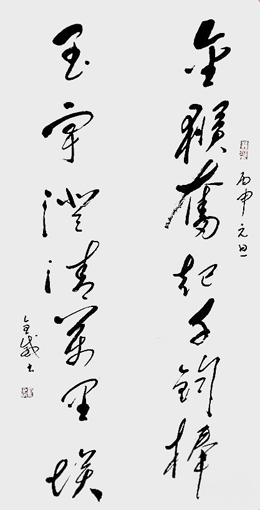 金猴奮起千鈞棒
丙申元旦
玉宇澄清萬里埃